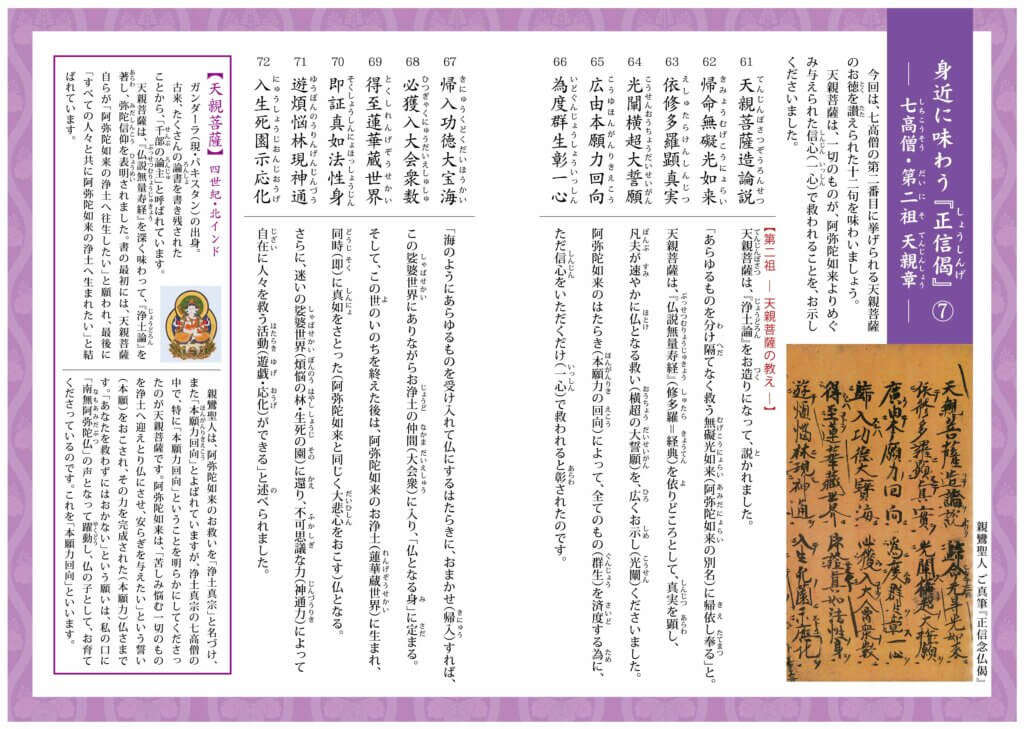 身近に味わう『正信偈』⑦
― 七高僧・第二祖 天親章 ―
今回は、七高僧の第二番目に挙げられる天親菩薩
のお徳を讃えられた十二句を味わいましょう。
天親菩薩は、一切のものが、阿弥陀如来よりめぐ
み与えられた信心(一心)で救われることを、お示し
くださいました。
親鸞聖人 ご真筆『正信念仏偈』
61 天親菩薩造論説
62 帰命無礙光如来
63 依修多羅顕真実
64 光闡横超大誓願
65 広由本願力回向
66 為度群生彰一心
【第二祖 ― 天親菩薩の教え ―】
天親菩薩は、『浄土論』をお造りになって、説かれました。
「あらゆるものを分け隔てなく救う無礙光如来(阿弥陀如来の別名)に帰依し奉る」と。
天親菩薩は、『仏説無量寿経』(修多羅＝経典)を依りどころとして、真実を顕し、
凡夫が速やかに仏となる救い(横超の大誓願)を、広くお示し(光闡)くださいました。
阿弥陀如来のはたらき(本願力の回向)によって、全てのもの(群生)を済度する為に、
ただ信心をいただくだけ(一心)で救われると彰されたのです。
67 帰入功徳大宝海
68 必獲入大会衆数
69 得至蓮華蔵世界
70 即証真如法性身
71 遊煩悩林現神通
72 入生死園示応化
「海のようにあらゆるものを受け入れて仏にするはたらきに、おまかせ(帰入)すれば、
この娑婆世界にありながらお浄土の仲間(大会衆)に入り、「仏となる身」に定まる。
そして、この世のいのちを終えた後は、阿弥陀如来のお浄土(蓮華蔵世界)に生まれ、
同時(即)に真如をさとった(阿弥陀如来と同じく大悲心をおこす)仏となる。
さらに、迷いの娑婆世界(煩悩の林・生死の園)に還り、不可思議な力(神通力)によって
自在に人々を救う活動(遊戯・応化)ができる」と述べられました。
【天親菩薩】四世紀・北インド
ガンダーラ(現・パキスタン)の出身。
古来、たくさんの論書を書き残された
ことから、「千部の論主」と呼ばれています。
天親菩薩は、『仏説無量寿経』を深く味わって、『浄土論』を
著し、弥陀信仰を表明されました。書の最初には、天親菩薩
自らが「阿弥陀如来の浄土へ往生したい」と願われ、最後に
「すべての人々と共に阿弥陀如来の浄土へ生まれたい」と結
ばれています。
親鸞聖人は、阿弥陀如来のお救いを「浄土真宗」と名づけ、
また、「本願力回向」とよばれていますが、浄土真宗の七高僧の
中で、特に「本願力回向」ということを明らかにしてくださっ
たのが天親菩薩です。阿弥陀如来は、「苦しみ悩む一切のもの
を浄土へ迎えとり仏にさせ、安らぎを与えたい」という誓い
(本願)をおこされ、その力を完成された(本願力)仏さまで
す。「あなたを救わずにはおかない」という願いは、私の口に
「南無阿弥陀仏」の声となって躍動し、仏の子として、お育て
くださっているのです。これを「本願力回向」といいます。